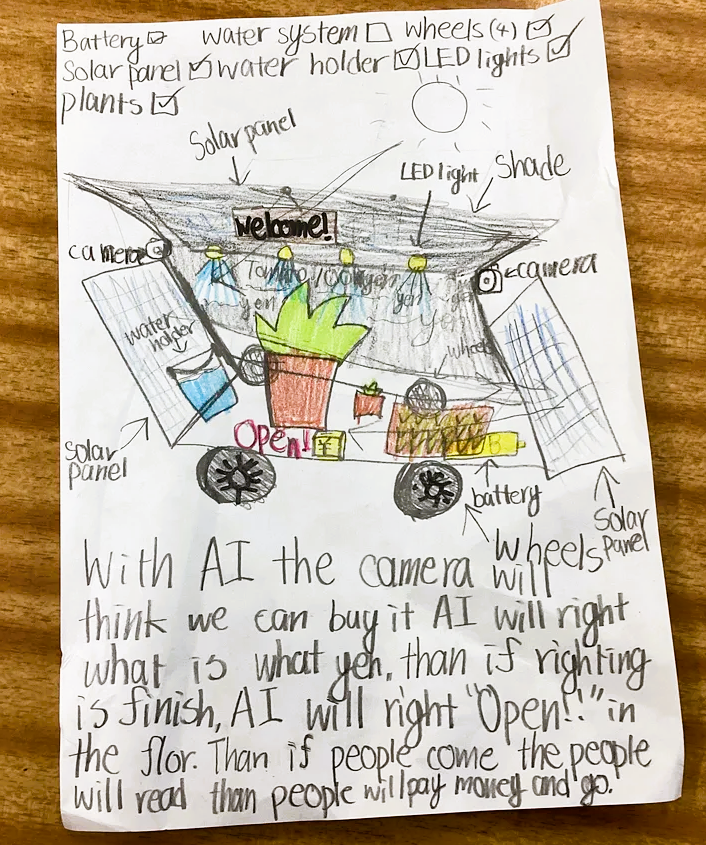 Battery ☑ water system ☐ wheels (4) ☑
Solar panel ☑ water holder ☑ LED lights ☑
plants ☑
Solar panel
LED light
Shade
welcome!
camera
camera
Tomato 100 yen
yen
yen
yen
water
holder
wheel
solar
panel
Open!
¥
B
battery
wheels
Solar
panel
With AI the camera will
think we can buy it AI will right
what is what yen, than if righting
is finish, AI will right "Open!!" in
the flor. Than if people come the people
will read than people will pay money and go.